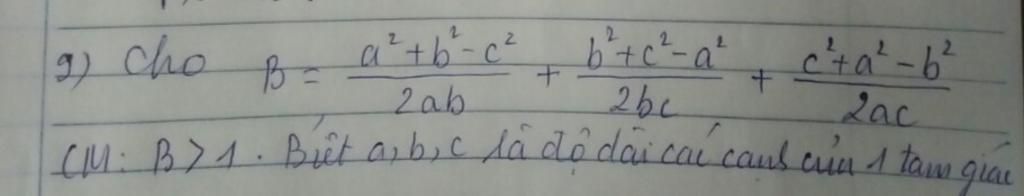 9) Cho B = \frac{a^2+b^2-c^2}{2ab} + \frac{b^2+c^2-a^2}{2bc} + \frac{c^2+a^2-b^2}{2ac}
CM: B > 1. Biết a, b, c là độ dài các cạnh của 1 tam giác